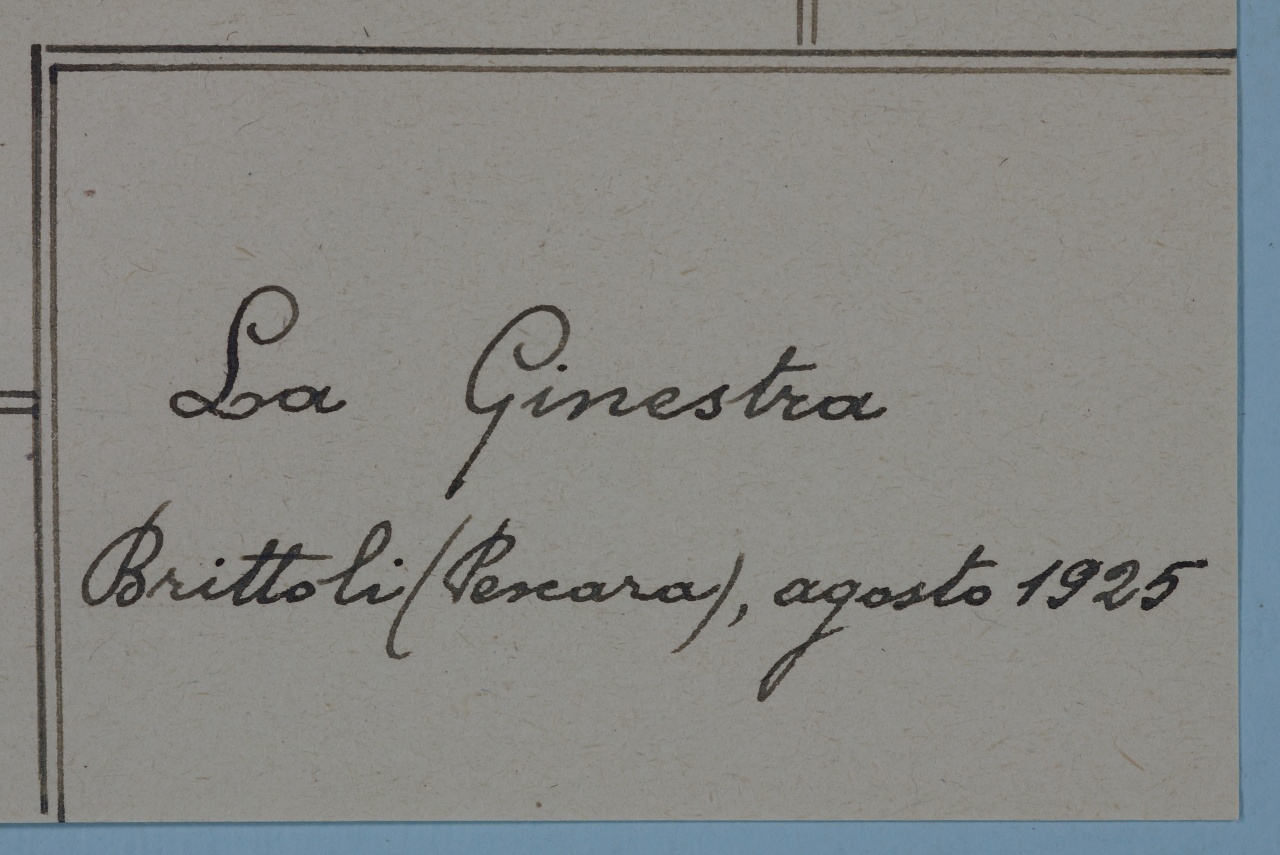 La Ginestra
Brittoli (Pescara), agosto 1925